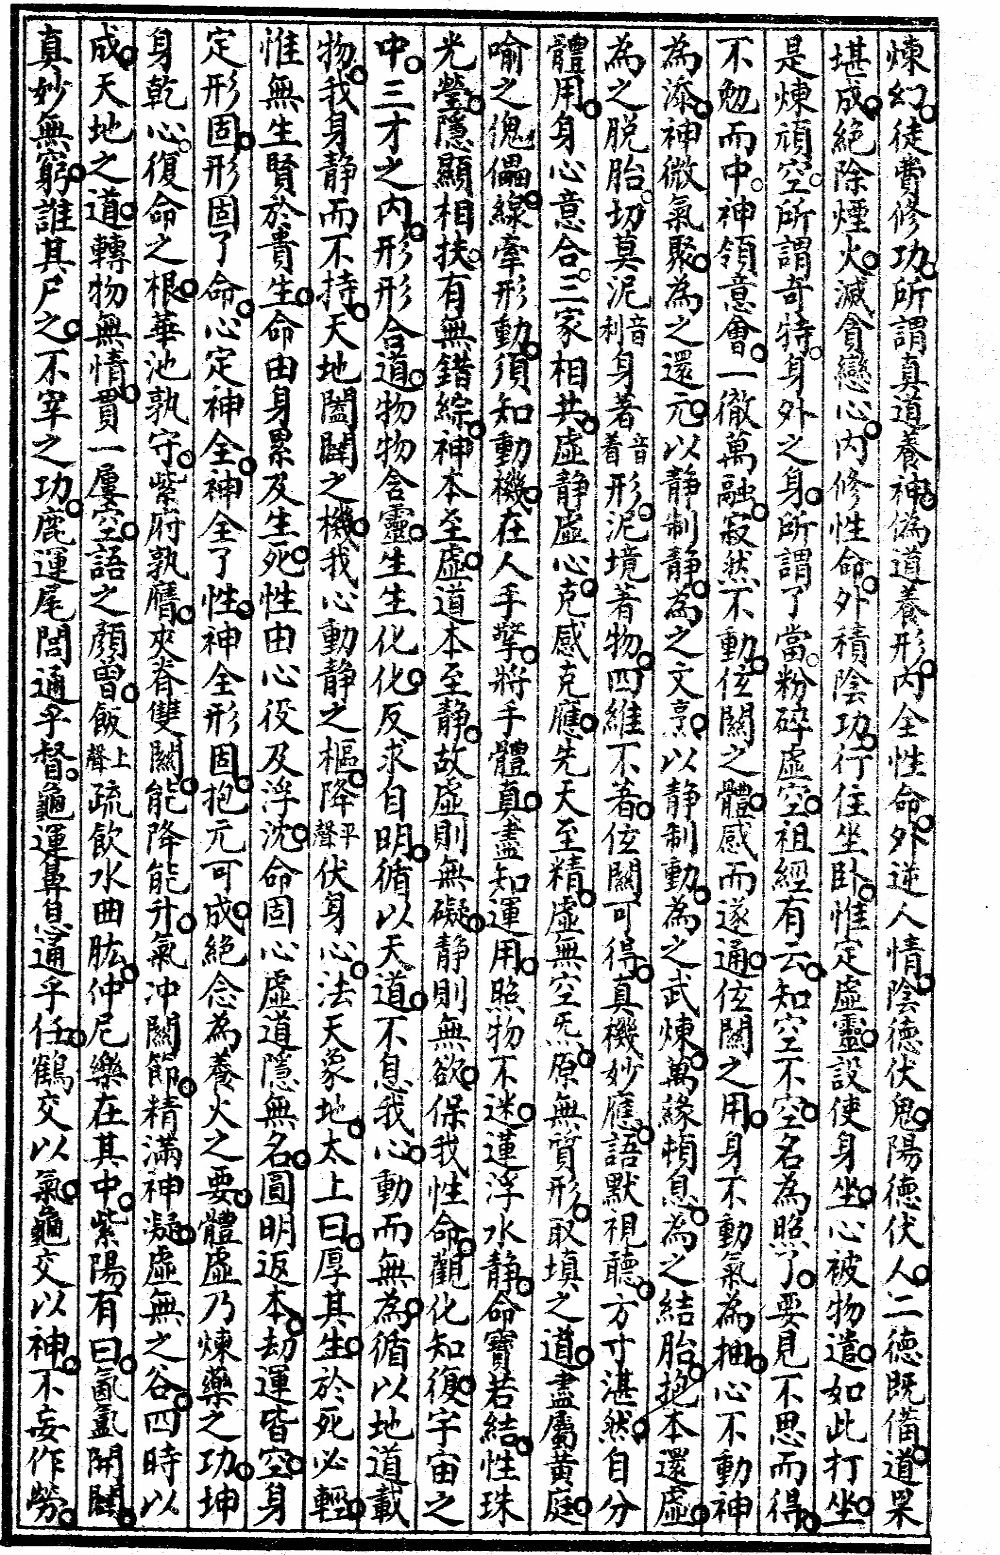 煉幻徒費修功所謂真道養神偽道養形內全性命外逆人情陰德伏鬼陽德伏人二德既備道果
堪成絕除煙火滅貪戀心內修性命外積陰功行住坐臥惟定虛靈設使身坐心被物遣如此打坐
是煉頑空所謂奇特身外之身所謂了當粉碎虛空祖經有云知空不空名為照了要見不思而得
不勉而中神領意會一徹萬融寂然不動位關之體感而遂通位關之用身不動氣為抽心不動神
為添神微氣聚為之還元以靜制靜為之文烹以靜制動為之武煉萬緣頓息為之結胎抱本還虛
為之脫胎切莫泥音利身著音着形泥境著物四維不著位關可得真機妙應語默視聽方寸湛然自分
體用身心意合三家相共虛靜虛心克感克應先天至精虛無空炁原無質形取填之道盡屬黃庭
喻之傀儡線牽形動須知動機在人手擎將手體真盡知運用照物不迷蓮浮水靜命寶若結性珠
光瑩隱顯相扶有無錯綜神本至虛道本至靜故虛則無礙靜則無欲保我性命觀化知復宇宙之
中三才之內形形合道物物含靈生生化化反求自明循以天道不息我心動而無為循以地道載
物我身靜而不持天地闔闢之機我心動靜之樞降平聲伏身心法天象地太上曰厚其生於死必輕
惟無生賢於貴生命由身累及生死性由心役及浮沈命固心虛道隱無名圓明返本劫運皆空身
定形固形固了命心定神全神全了性神全形固抱元可成絕念為養火之要體虛乃煉藥之功坤
身乾心復命之根華池孰守紫府孰膺夾脊雙關能降能升氣冲關節精滿神凝虛無之谷四時以
成天地之道轉物無情貫一屢空語之顏曾飯上聲疏飲水曲肱仲尼樂在其中紫陽有曰氤氳開闢
真妙無窮誰其尸之不宰之功鹿運尾閭通乎督龜運鼻息通乎任鶴交以氣龜交以神不妄作勞